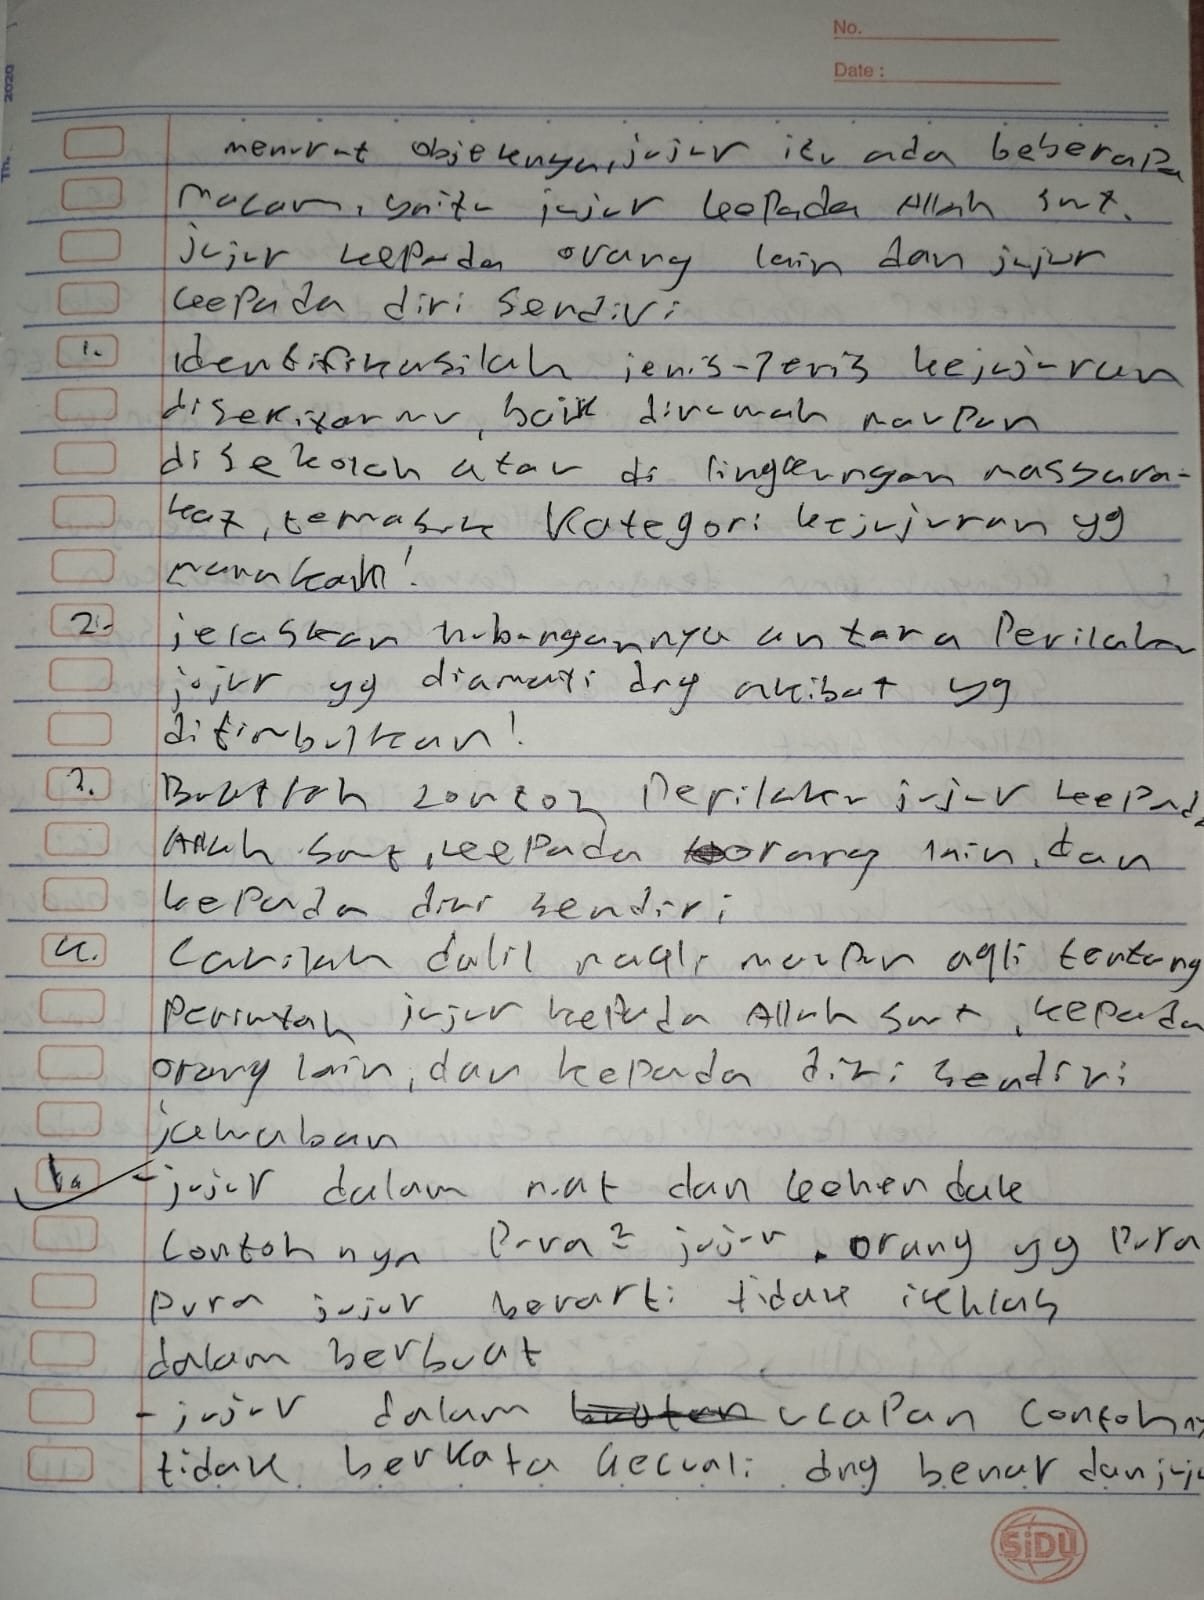 No.
Date :
Th. 2020
menurut objeknya, jujur itu ada beberapa
macam, yaitu jujur kepada Allah swt.
jujur kepada orang lain dan jujur
kepada diri sendiri
1. identifikasilah jenis-jenis kejujuran
disekitarmu, baik dirumah maupun
disekolah atau di lingkungan massyara-
kat, temasuk Kategori kejujuran yg
manakah!
2. jelaskan hubungannya antara Perilaku
jujur yg diamati dng akibat yg
ditimbulkan!
3. Buatlah contoh Perilaku jujur kepada
Allah swt, kepada orang lain, dan
kepada diri sendiri
4. Carilah dalil naqli maupun aqli tentang
Perintah jujur kepada Allah swt, kepada
orang lain, dan kepada diri sendiri
jawaban
1. - jujur dalam niat dan kehendak
Contoh nya Pura2 jujur. orang yg Pura
pura jujur berarti tidak ikhlas
dalam berbuat
- jujur dalam ucapan Contohny
tidak berkata kecuali dng benar dan juju
SiDU